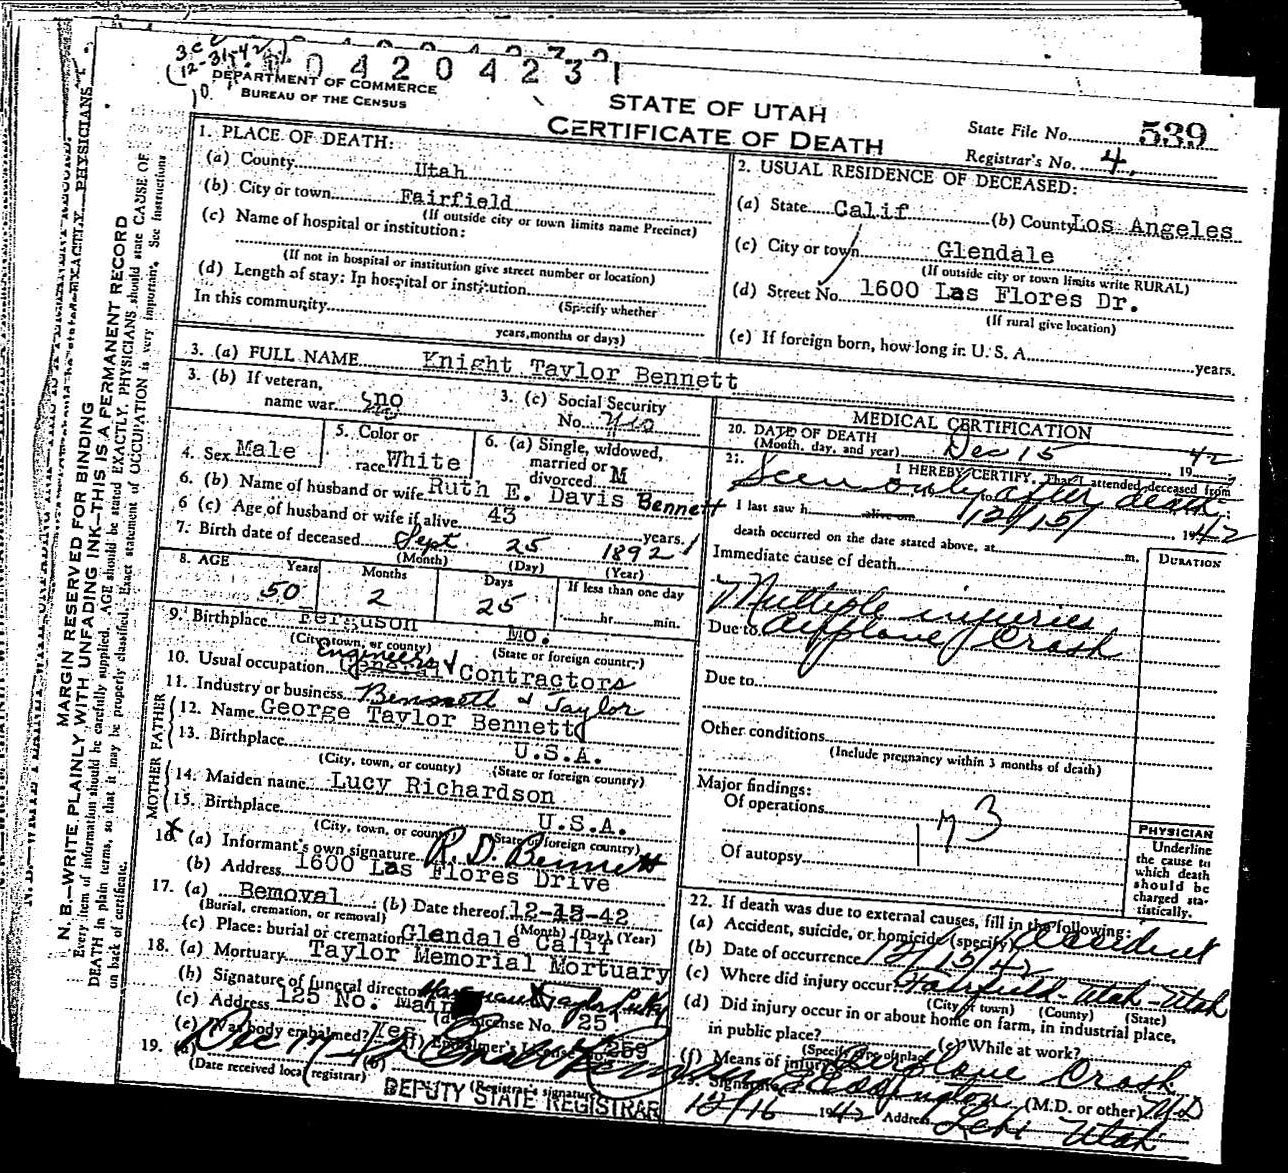 3 c c
(12-31-42)
0420423
DEPARTMENT OF COMMERCE
BUREAU OF THE CENSUS
STATE OF UTAH
CERTIFICATE OF DEATH
State File No. 539
Registrar's No. 4.
N. B.—WRITE PLAINLY WITH UNFADING INK—THIS IS A PERMANENT RECORD
MARGIN RESERVED FOR BINDING
Every item of information should be carefully supplied. AGE should be stated EXACTLY. PHYSICIANS should state CAUSE OF
DEATH in plain terms, so that it may be properly classified. Exact statement of OCCUPATION is very important. See Instructions
on back of certificate.
1. PLACE OF DEATH:
(a) County Utah
(b) City or town Fairfield
(If outside city or town limits name Precinct)
(c) Name of hospital or institution:
(If not in hospital or institution give street number or location)
(d) Length of stay: In hospital or institution
(Specify whether
In this community
years, months or days)
2. USUAL RESIDENCE OF DECEASED:
(a) State Calif (b) County Los Angeles
(c) City or town Glendale
(If outside city or town limits write RURAL)
(d) Street No. 1600 Las Flores Dr.
(If rural give location)
(e) If foreign born, how long in U. S. A. years.
3. (a) FULL NAME Knight Taylor Bennett
3. (b) If veteran, name war no
3. (c) Social Security No.
4. Sex Male
5. Color or race White
6. (a) Single, widowed, married or divorced M
6. (b) Name of husband or wife Ruth E. Davis Bennett
6 (c) Age of husband or wife if alive 43 years.
7. Birth date of deceased Sept. 25 1892
(Month) (Day) (Year)
8. AGE Years Months Days If less than one day
50 2 25 hr. min.
9. Birthplace Ferguson Mo.
(City, town, or county) (State or foreign country)
10. Usual occupation General Engineers & Contractors
11. Industry or business Bennett & Taylor
FATHER
12. Name George Taylor Bennett
13. Birthplace U.S.A.
(City, town, or county) (State or foreign country)
MOTHER
14. Maiden name Lucy Richardson
15. Birthplace U.S.A.
(City, town, or county) (State or foreign country)
16. x (a) Informant's own signature R. D. Bennett
(b) Address 1600 Las Flores Drive
17. (a) Removal (b) Date thereof 12-15-42
(Burial, cremation, or removal) (Month) (Day) (Year)
(c) Place: burial or cremation Glendale Calif
18. (a) Mortuary Taylor Memorial Mortuary
(b) Signature of funeral director
(c) Address 125 No. (d) License No. 25
(e) Was body embalmed? Yes (f) Embalmer's License No. 259
19. (a) Dec 17 (b)
(Date received local registrar) (Registrar's signature)
DEPUTY STATE REGISTRAR
MEDICAL CERTIFICATION
20. DATE OF DEATH
(Month, day, and year) Dec 15 1942
21. I HEREBY CERTIFY, That I attended deceased from
Seen only after death
to
I last saw h alive on 12/15/ 1942
death occurred on the date stated above, at m.
Immediate cause of death
DURATION
Multiple injuries
Due to Airplane Crash
Due to
Other conditions
(Include pregnancy within 3 months of death)
Major findings:
Of operations
173
Of autopsy
PHYSICIAN
Underline
the cause to
which death
should be
charged sta-
tistically.
22. If death was due to external causes, fill in the following:
(a) Accident, suicide, or homicide (specify) Accident
(b) Date of occurrence 12/15/42
(c) Where did injury occur? Fairfield-Utah-Utah
(City or town) (County) (State)
(d) Did injury occur in or about home on farm, in industrial place,
in public place? (e) While at work?
(Specify type of place)
(f) Means of injury Airplane Crash
23. Signature Eddington (M.D. or other) M D
12/16 1942 Address Lehi Utah